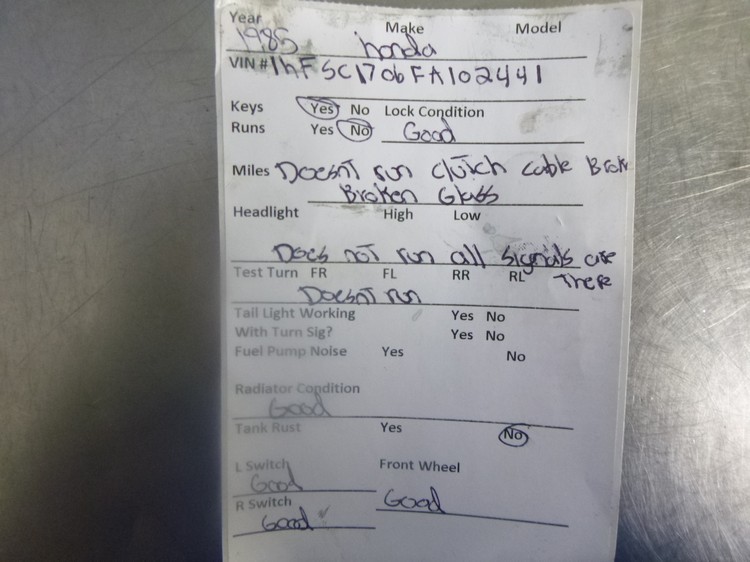 Year Make Model
1985 honda
VIN # 1hFSC1706FA102441
Keys Yes No Lock Condition
Runs Yes No Good
Miles Doesnt run clutch cable Brok
Broken Glass
Headlight High Low
Does not run all signals are
Test Turn FR FL RR RL There
Doesnt run
Tail Light Working Yes No
With Turn Sig? Yes No
Fuel Pump Noise Yes No
Radiator Condition
Good
Tank Rust Yes No
L Switch Front Wheel
Good
R Switch Good
Good